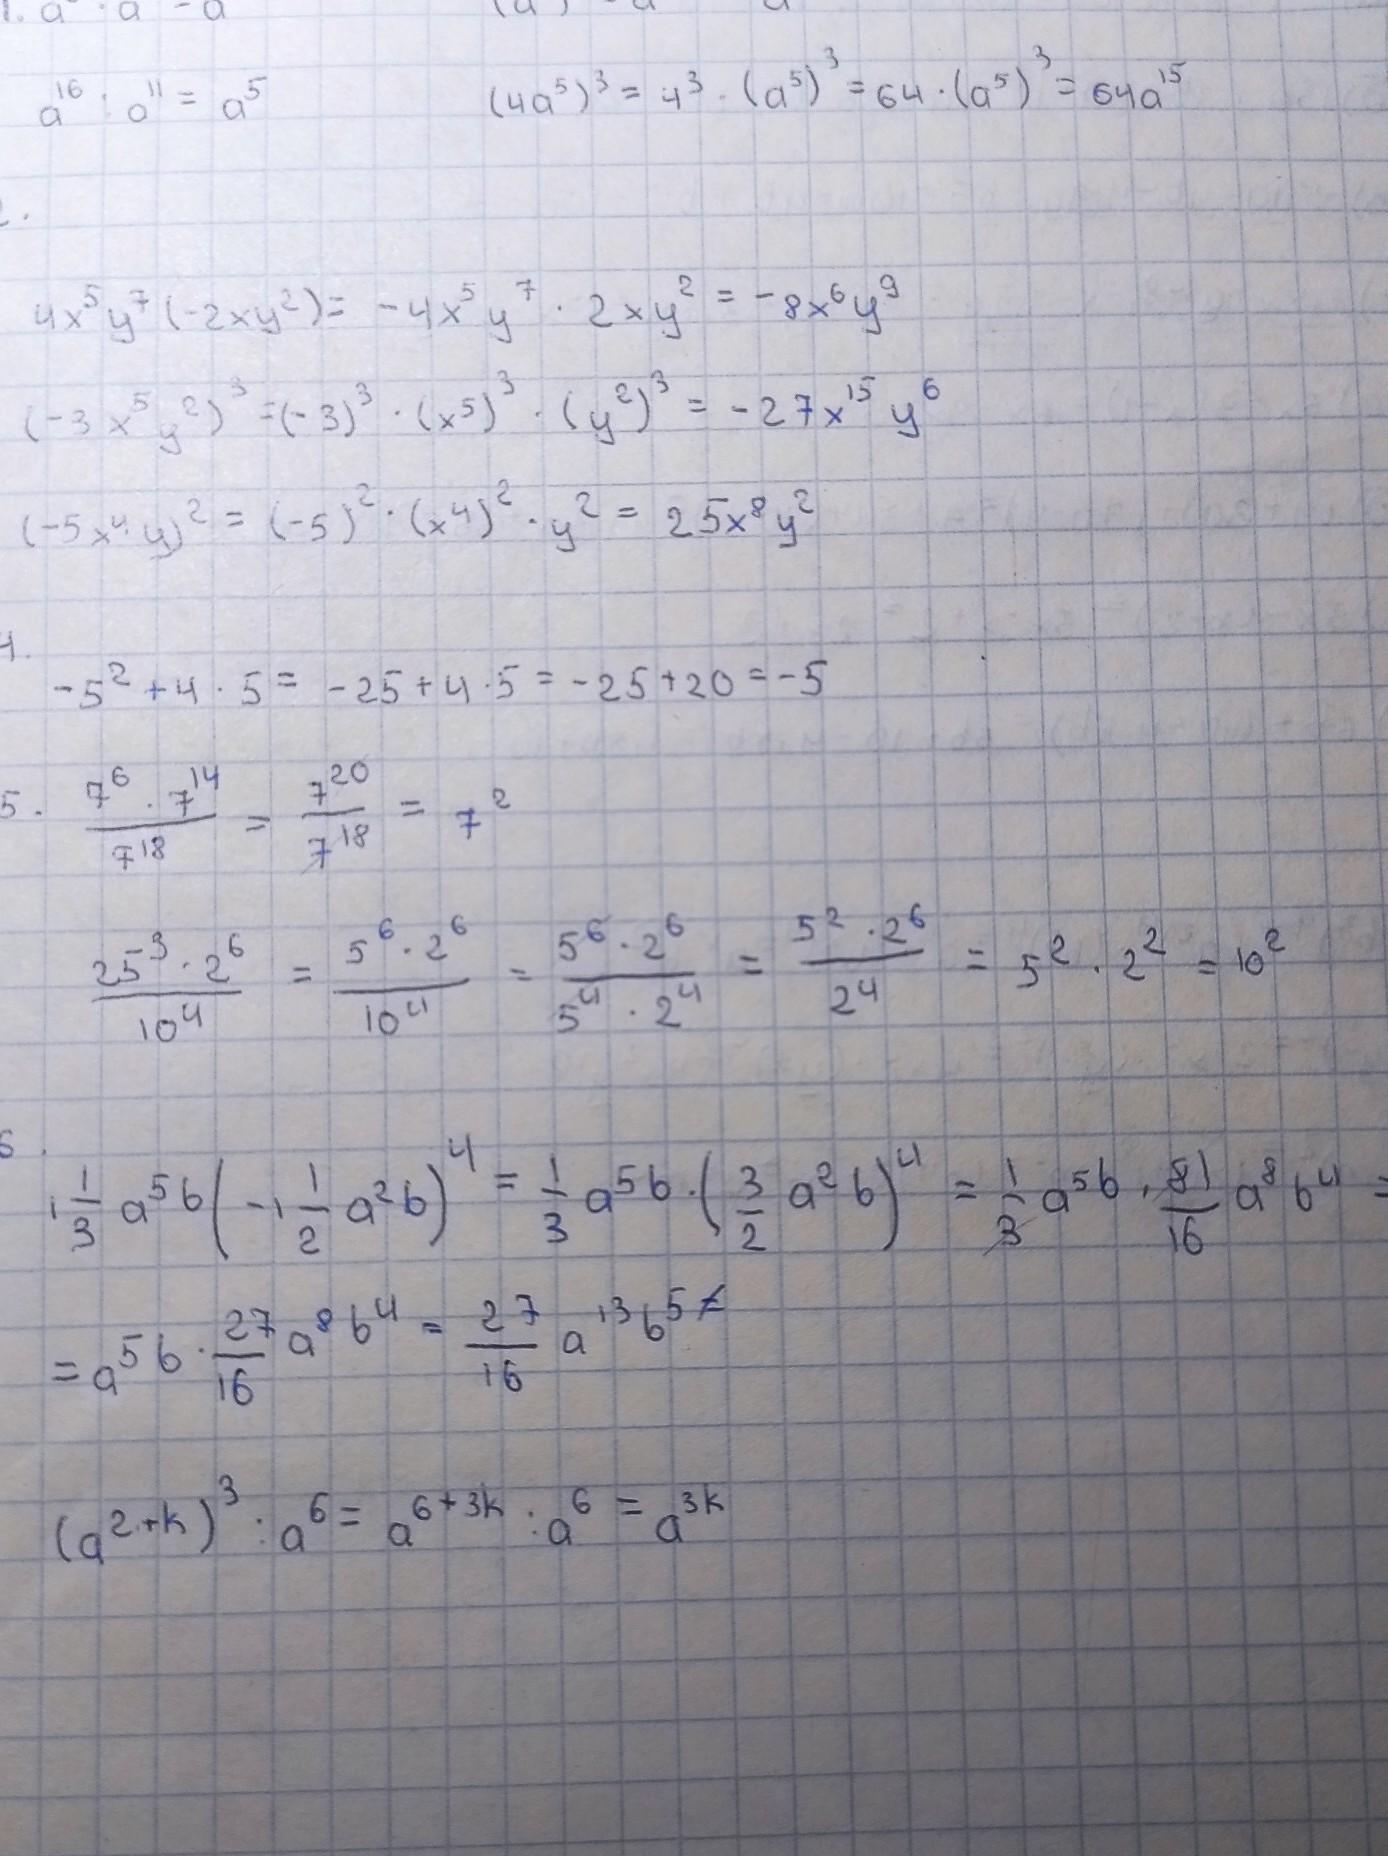 a¹⁶ : a¹¹ = a⁵   (4a⁵)³ = 4³ · (a⁵)³ = 64 · (a⁵)³ = 64a¹⁵
4x⁵y⁷(-2xy²) = -4x⁵y⁷ · 2xy² = -8x⁶y⁹
(-3x⁵y²)³ = (-3)³ · (x⁵)³ · (y²)³ = -27x¹⁵y⁶
(-5x⁴y)² = (-5)² · (x⁴)² · y² = 25x⁸y²
4.
-5² + 4 · 5 = -25 + 4 · 5 = -25 + 20 = -5
5. (7⁶ · 7¹⁴)/7¹⁸ = 7²⁰/7¹⁸ = 7²
(25³ · 2⁶)/10⁴ = (5⁶ · 2⁶)/10⁴ = (5⁶ · 2⁶)/(5⁴ · 2⁴) = (5² · 2⁶)/2⁴ = 5² · 2² = 10²
6.
1 1/3 a⁵b(-1 1/2 a²b)⁴ = 1/3 a⁵b · (3/2 a²b)⁴ = 1/3 a⁵b · 81/16 a⁸b⁴ =
= a⁵b · 27/16 a⁸b⁴ = 27/16 a¹³b⁵
(a²⁺ᵏ)³ : a⁶ = a⁶⁺³ᵏ : a⁶ = a³ᵏ